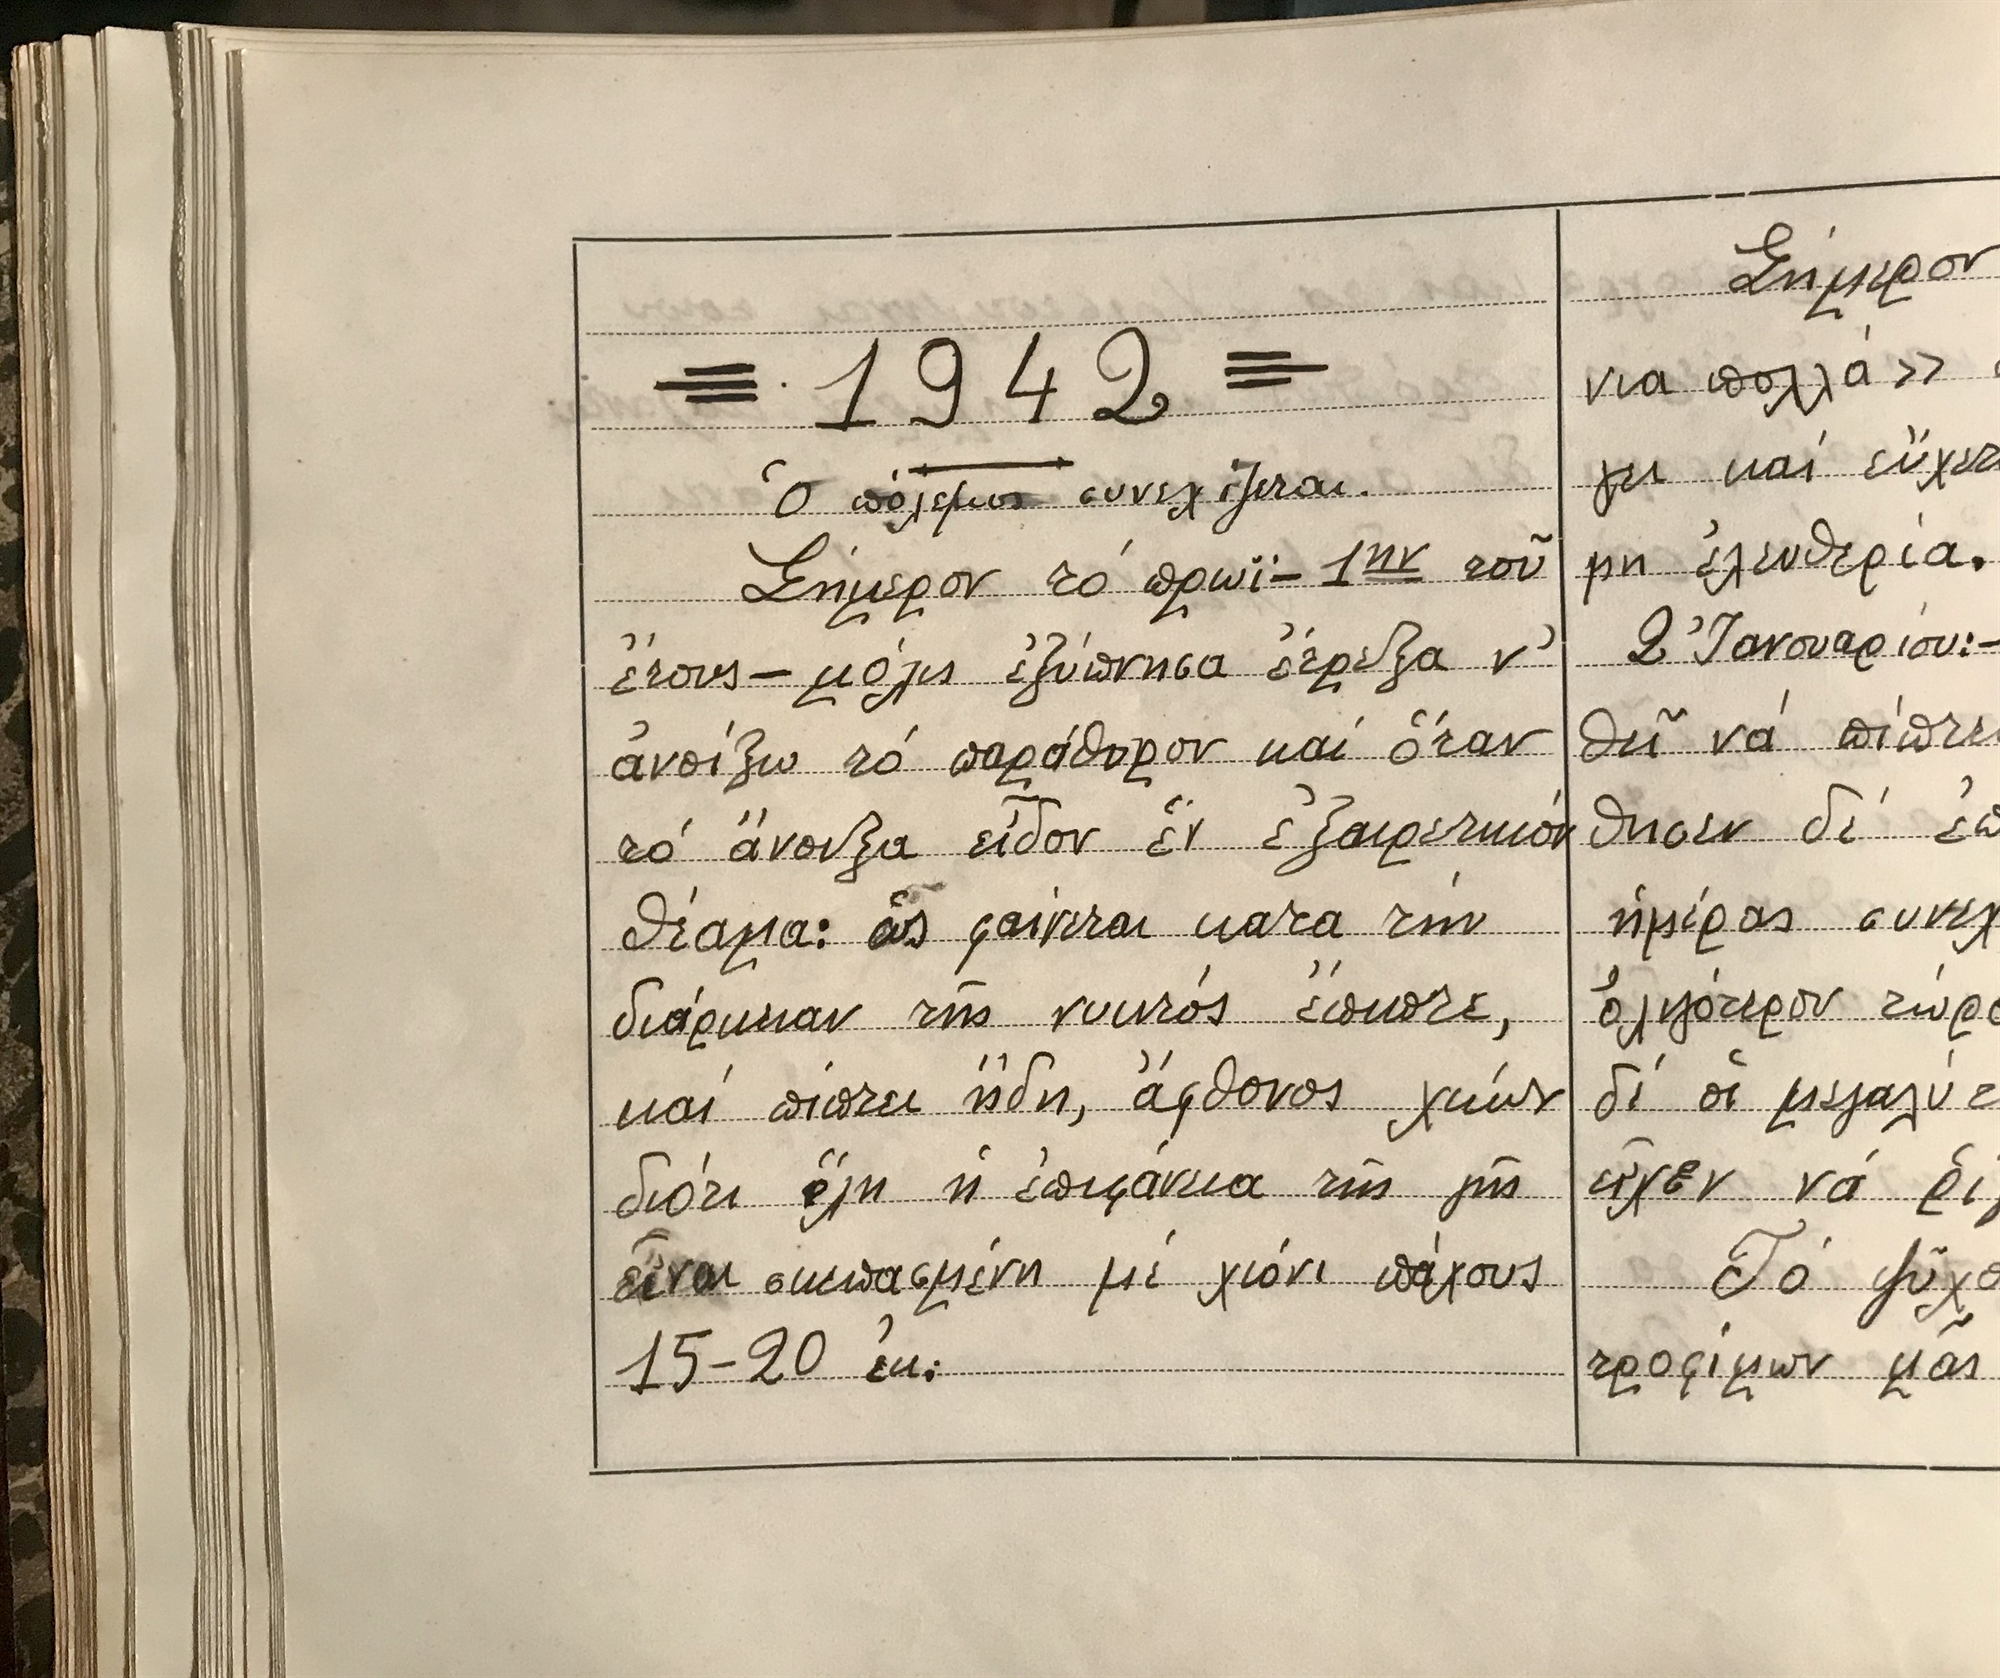 1942
Ὁ πόλεμος συνεχίζεται.
Σήμερον τό πρωΐ– 1ην τοῦ
ἔτους– μόλις ἐξύπνησα ἔτρεξα ν'
ἀνοίξω τό παράθυρον καί ὅταν
τό ἄνοιξα εἶδον ἕν ἐξαιρετικόν
θέαμα: ὡς φαίνεται κατα τήν
διάρκειαν τῆς νυκτός ἔπιπτε,
καί πίπτει ἤδη, ἄφθονος χιών
διότι ὅλη ἡ ἐπιφάνεια τῆς γῆς
εἶναι σκεπασμένη μέ χιόνι πάχους
15–20 ἑκ:
Σήμερον
νια πολλά»
γει καί εὔχετ
μη ἐλευθερία.
2 Ἰανουαρίου:–
θεῖ νά πίπτει
θησεν δέ ἐπ
ἡμέρας συνεχ
ὀλιγότερον τώρ
δέ οἱ μεγαλύτ
εἶχεν νά ρί
Τό ψῦχο
τροφίμων μᾶς